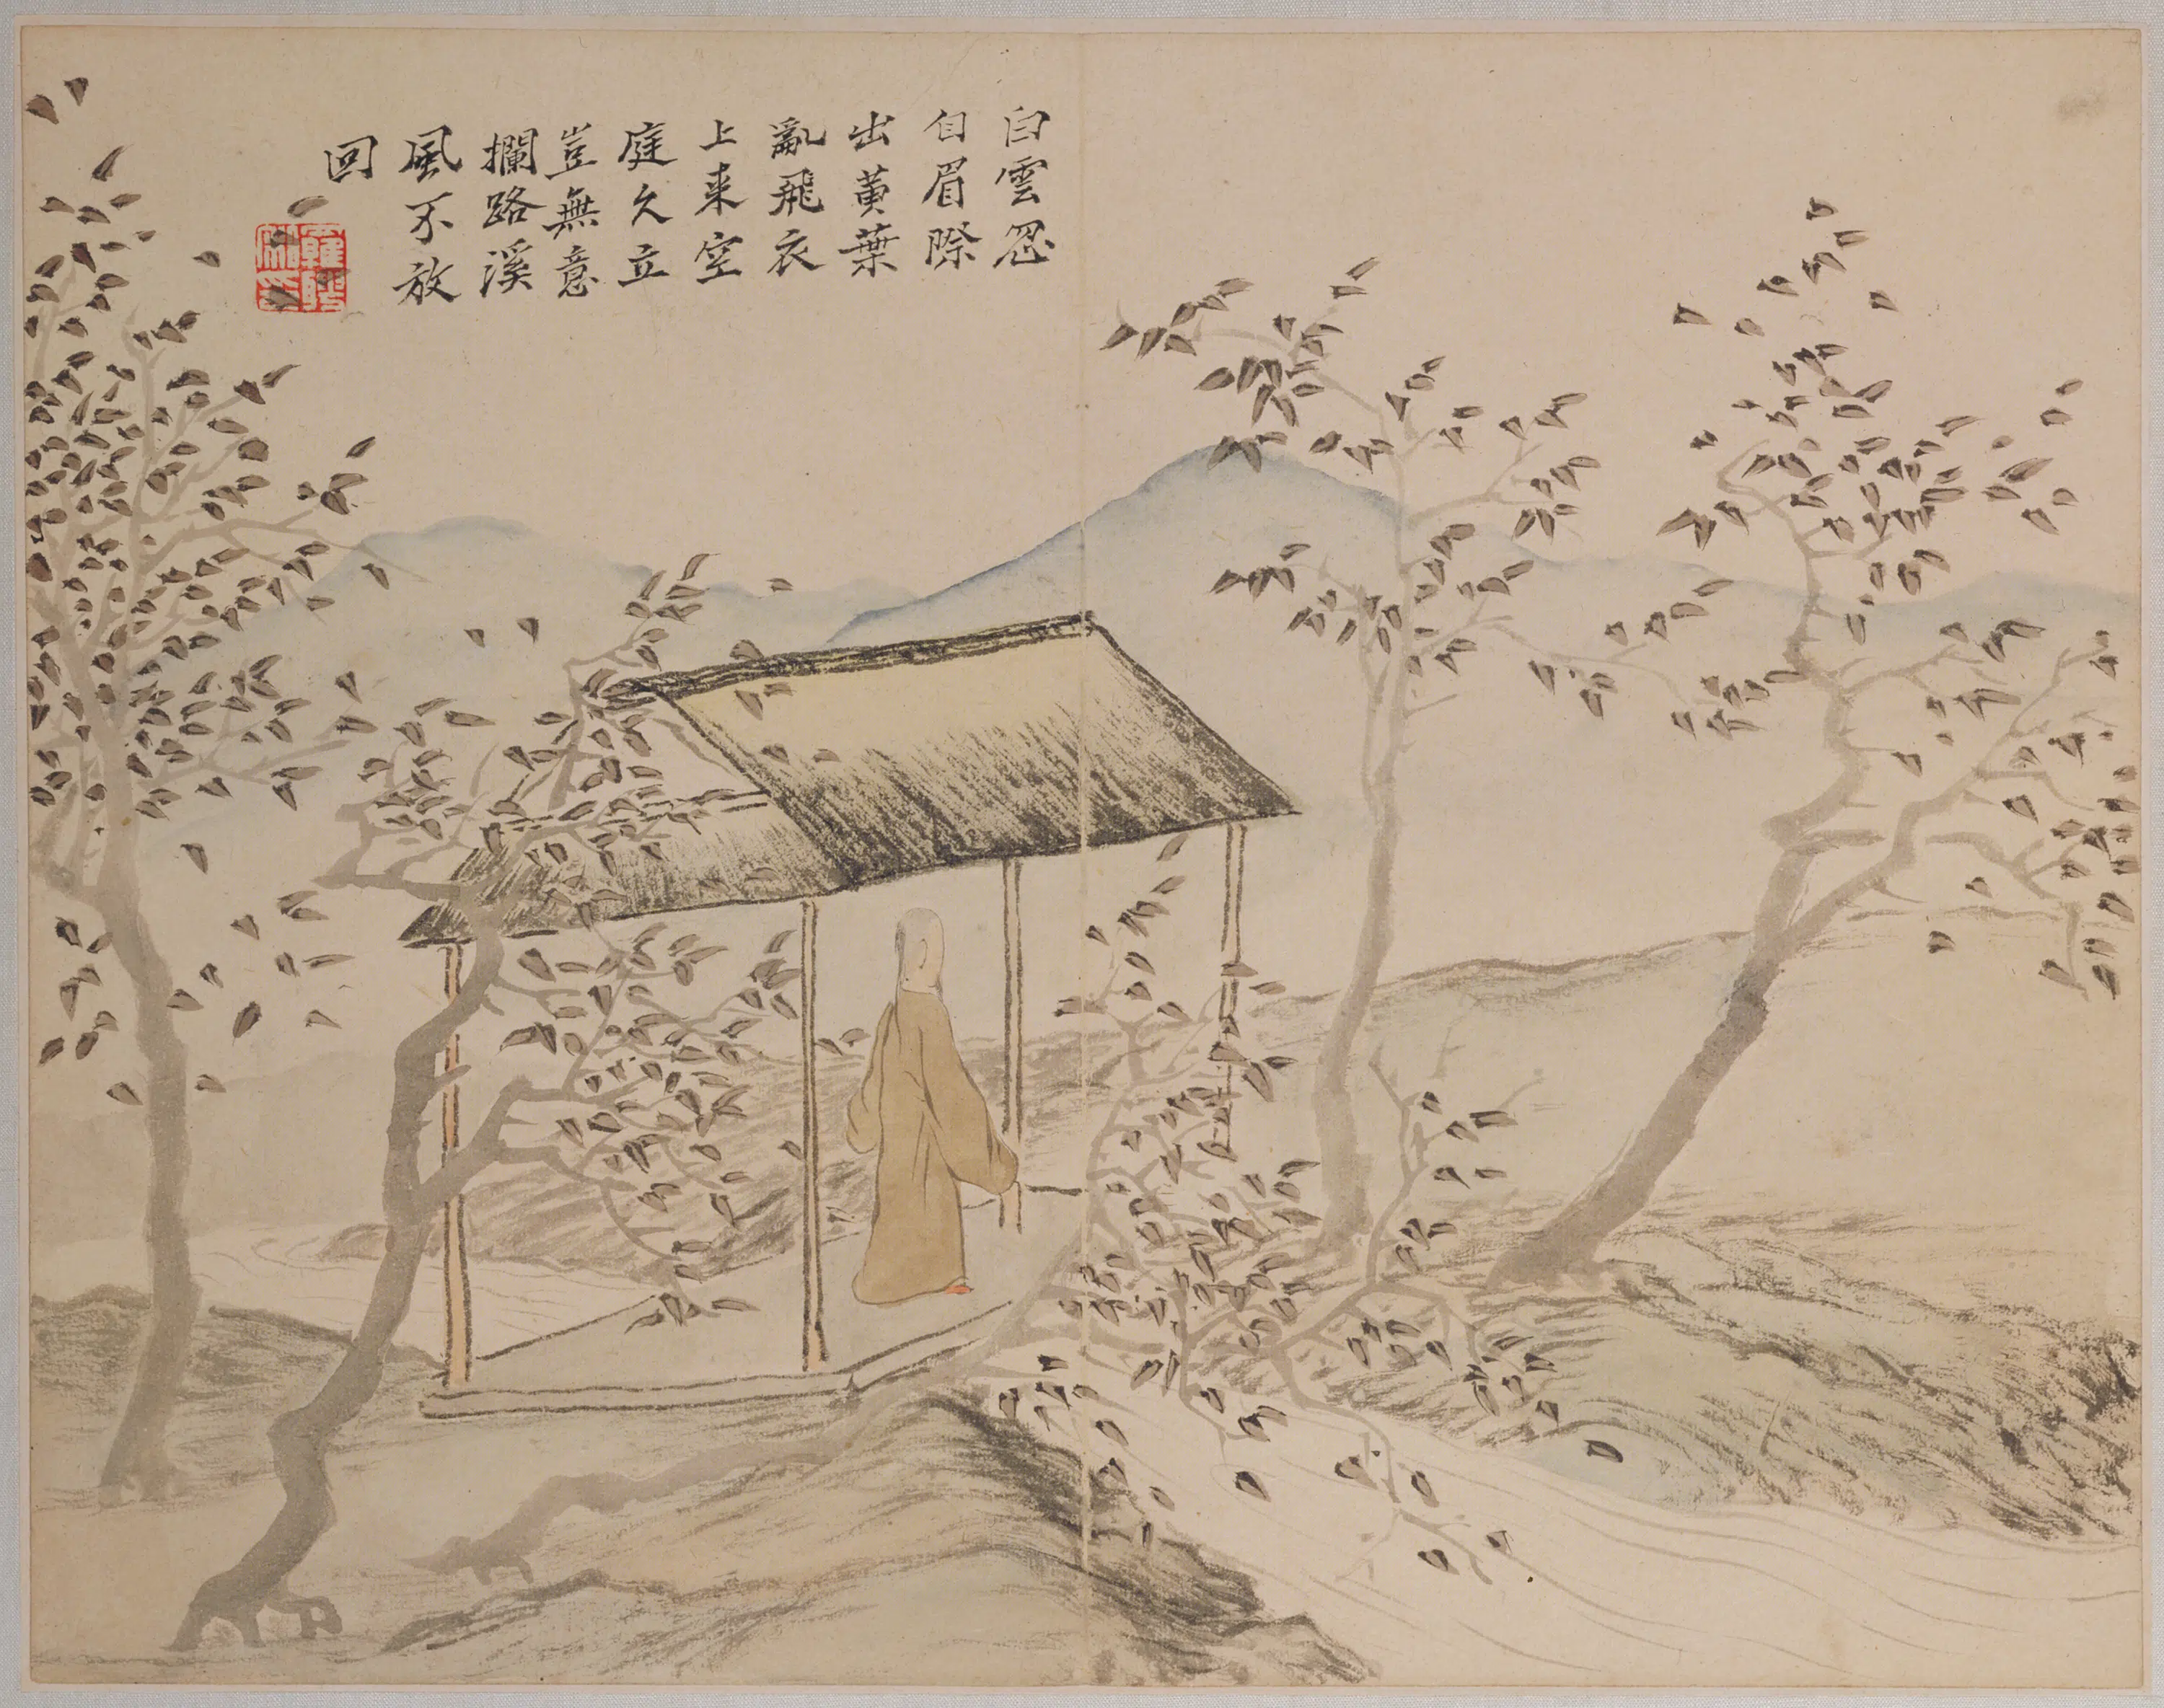 白雲忽
自眉際
出黄葉
亂飛衣
上来空
庭久立
豈無意
攔路溪
風不放
回